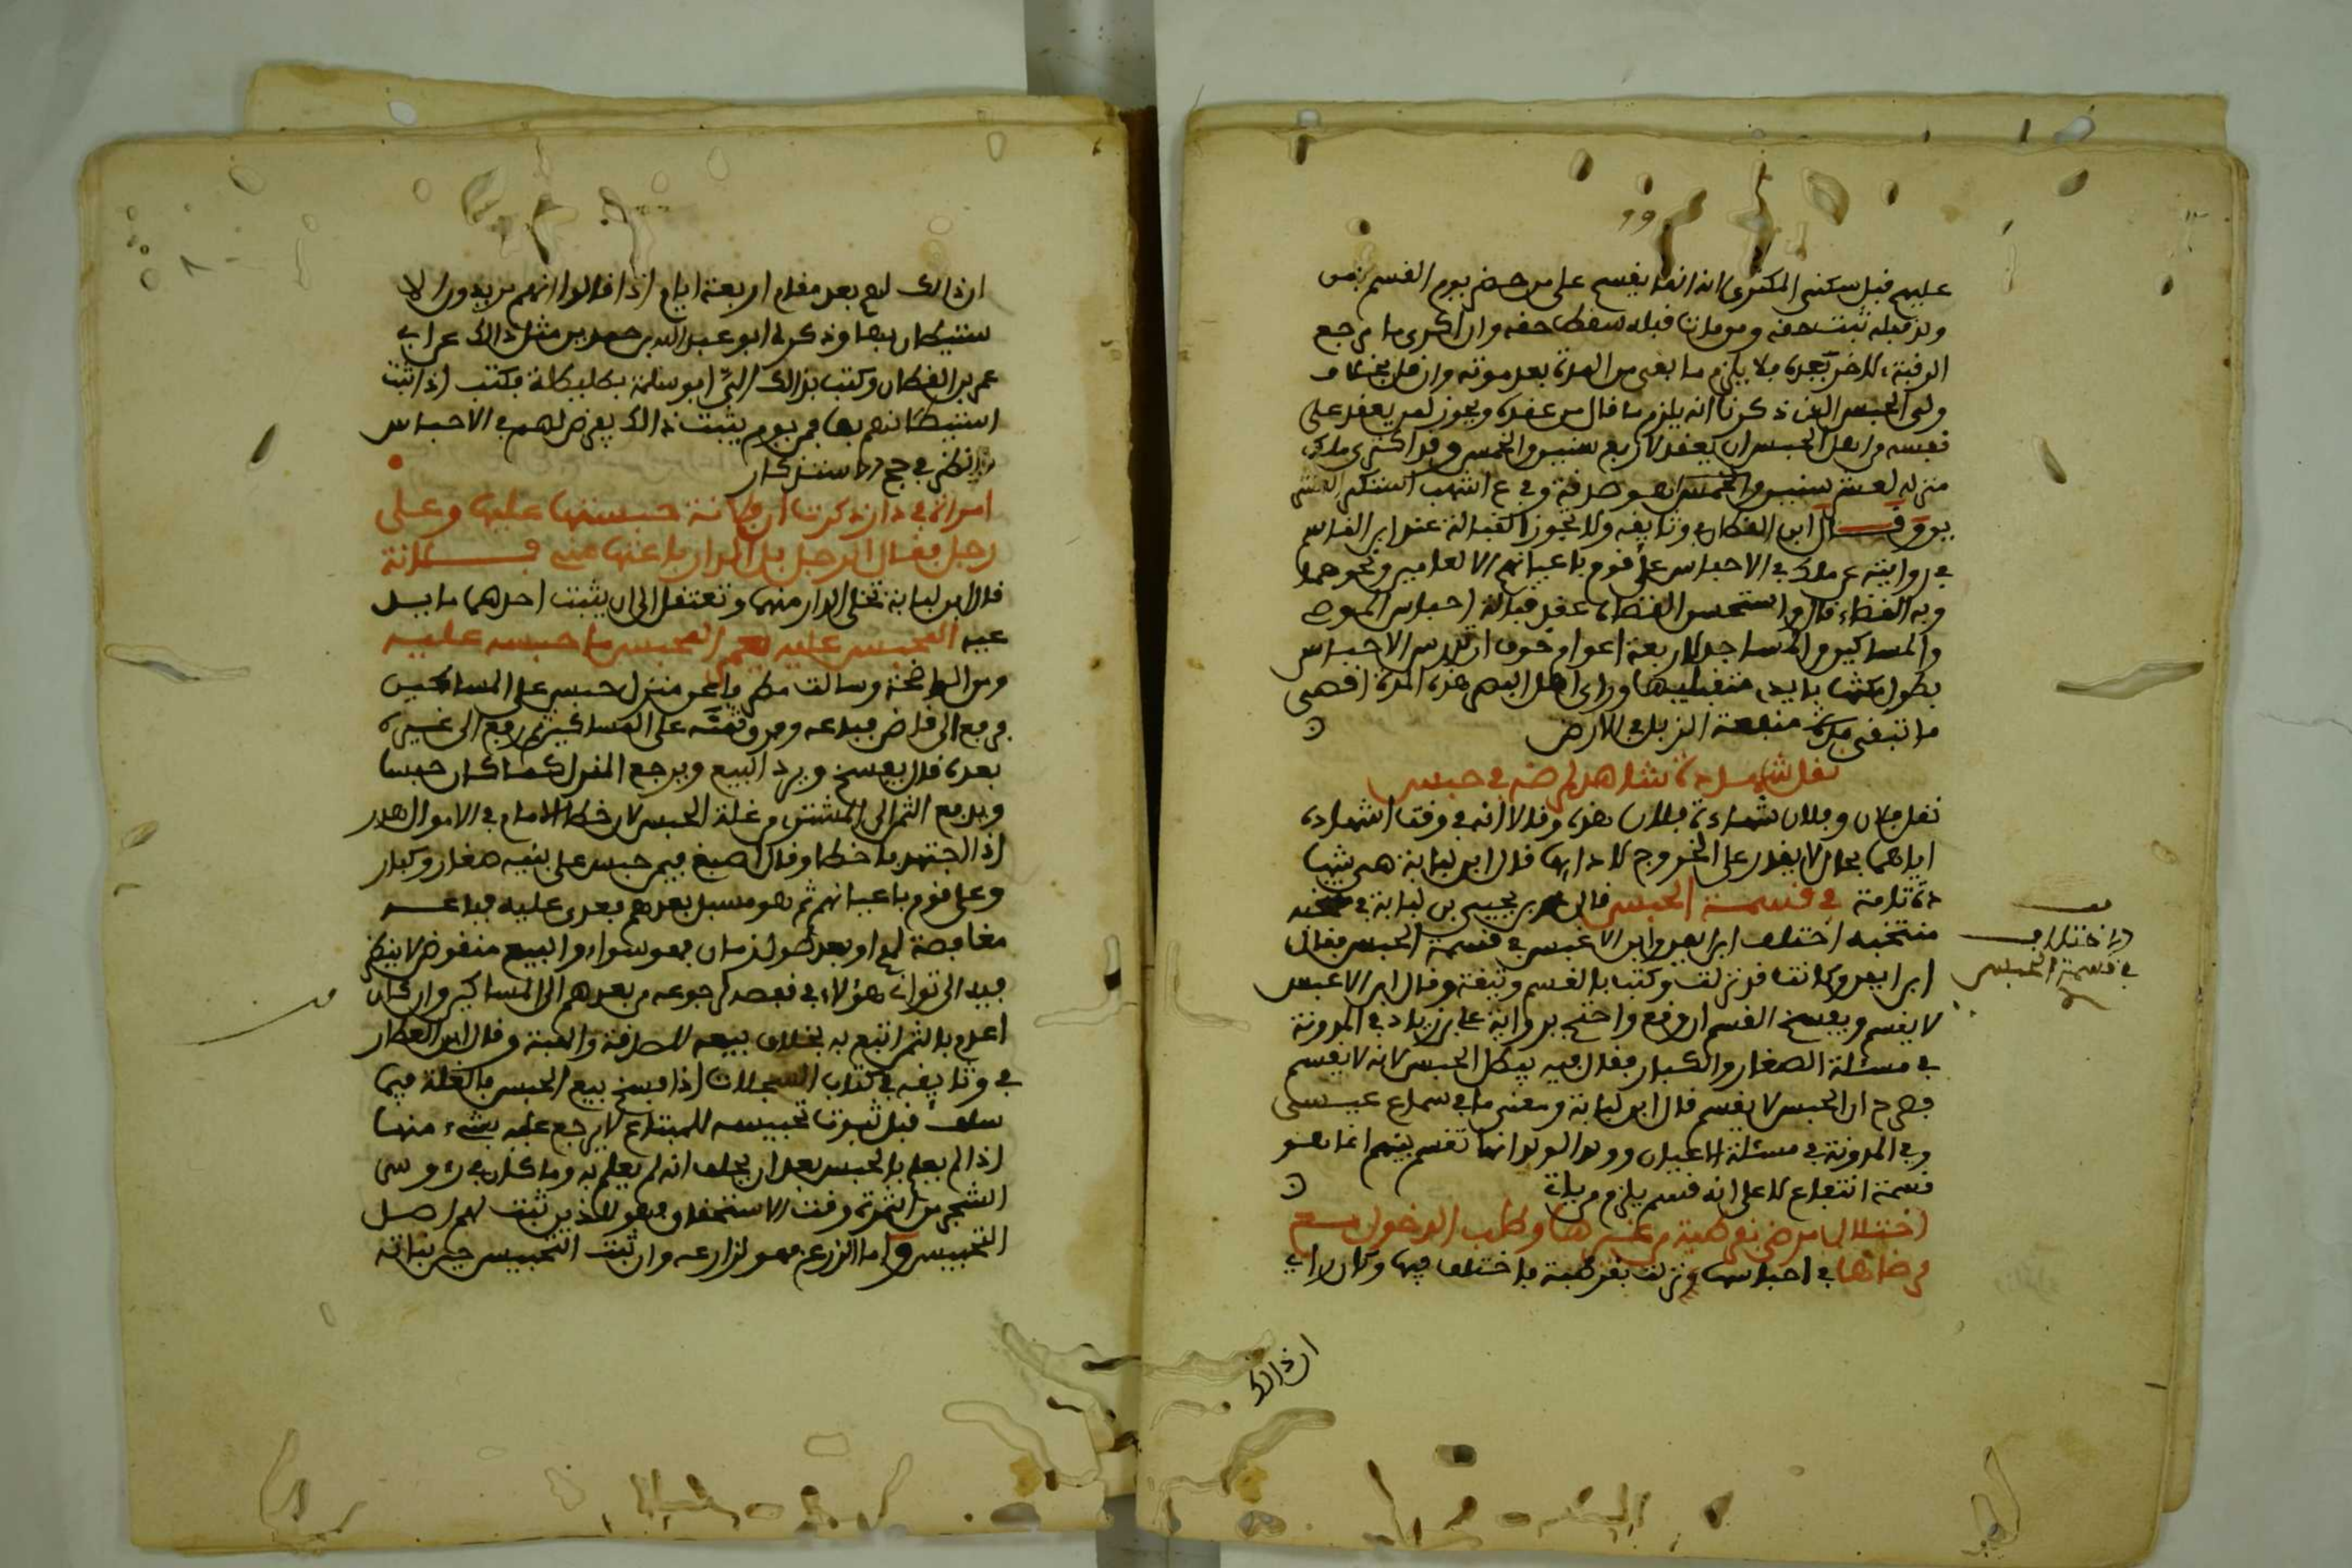 عليهم قبل سكنى المكترى انه انما يقسم على من حضر يوم القسم فمن
ولد قبله ثبت حقه ومن مات قبله سقط حقه وان اكرى ما مرجع
الرقبة للاخر بعده فلا يلزم ما بقى من المدة بعد موته وان كان
ولى الحبس الذى ذكرنا انه يلزم ما قال من عقده ويجوز لمن يعقد على
نفسه من اهل الحبس ان يعقد لاربع سنين والخمس وقد اكترى ملك
منزله لعشر سنين وهو صدقة وفي
وقال ابن العطار في وثايقه ولا تجوز القبالة عند ابن القاسم
في روايته عن ملك في الاحباس على قوم باعيانهم الا لعامين ونحوهما
وبه القضاء قال واستحسن القضاة عقد قبالة احباس المرضى
والمساكين والمساجد لاربعة اعوام خوف ان تدرس الاحباس
بطول مكثها بايدي متقبليها وراى اهل العلم هذه المدة اقصى
ما تبقى مدة منفعة الزبل في الارض
نقل شهادة شاهد لمرضه في حبس
نقل فلان وفلان شهادة فلان هذه وقالا انه في وقت اشهاده
اياهما بحال لا يقدر على الخروج لادايها قال ابن لبابة هي شهادة
تامة في قسمة الحبس قال محمد بن يحيى بن لبابة في
منتخبه اختلف ابن ايمن وابن الاعبس في قسمة الحبس فقال
ابن ايمن وكانت قد نزلت وكتب بالقسم وثيقة وقال ابن الاعبس
لا يقسم ويفسخ القسم ان وقع واحتج برواية علي بن زياد في المدونة
في مسئلة الصغار والكبار فقال فيه يبطل الحبس لانه لا يقسم
فصرح ان الحبس لا يقسم قال ابن لبابة ومعنى ما في سماع عيسى
وفي المدونة في مسئلة الاعيان وولد الولد انها تقسم بينهم انما هو
قسمة انتفاع لا على انه قسم يلزم من ياتي
اختلال مرضى قرطبة من غيرها وطلب الدخول مع
مرضاها في احباسها ونزلت بقرطبة فاختلف فيها وكان راي
ان ذلك
الاختلاف
في قسمة الحبس
ان ذلك لهم بعد مقام اربعة ايام اذا قالوا انهم يريدون الا
ستيطان بها وذكر لي ابو عبد الله بن حمدين مثل ذلك عن ابي
عمر بن القطان وكتب بذلك الي ابو سلمة بطليطلة فكتب اذا ثبت
استيطانهم بها فمن يوم يثبت ذلك يفرض لهم في الاحباس
امراة في دار ذكرت ان فلانة حبستها عليها وعلى
رجل فقال الرجل بل الدار باعتها مني فلانة
قال ابن لبابة تخلى الدار منهما وتعتقل الى ان يثبت احدهما ما يدعيه
المحبس عليه يعمر المحبس ما حبس عليه
ومن الواضحة وسالت مطرفا عن منزل حبس على المساكين
فرفع الى قاض فباعه وفرق ثمنه على المساكين ثم رفع الى غيره
بعده قال يفسخ ويرد البيع ويرجع المنزل كما كان حبسا
ويدفع الثمن الى المشتري من غلة الحبس لان خطا الامام في الاموال هدر
اذا اجتهد فاخطا وقال اصبغ فيمن حبس على بنيه صغار وكبار
وعلى قوم باعيانهم ثم هو مسبل بعدهم بعدى عليه فباعه
مغافصة لهم او بعد طول زمان فهو سواء والبيع منقوض لا ينظر
فيه الى تواني هؤلاء في نقصه لرجوعه من بعدهم الى المساكين وان كان
اعدم بالثمن اتبع به بخلاف بيعه للصدقة والهبة وقال ابن العطار
في وثايقه في كتاب السجلات اذا فسخ بيع الحبس فالغلة فيما
سلف قبل ثبوت تحبيسه للمبتاع لا يرجع عليه بشيء منها
اذا لم يعلم بالحبس بعد ان يحلف انه لم يعلم به وما كان في رءوس
الشجر من الثمرة وقت الاستحقاق فهو للذين ثبت لهم اصل
التحبيس واما الزرع فهو لزارعه وان ثبت التحبيس حين نباته